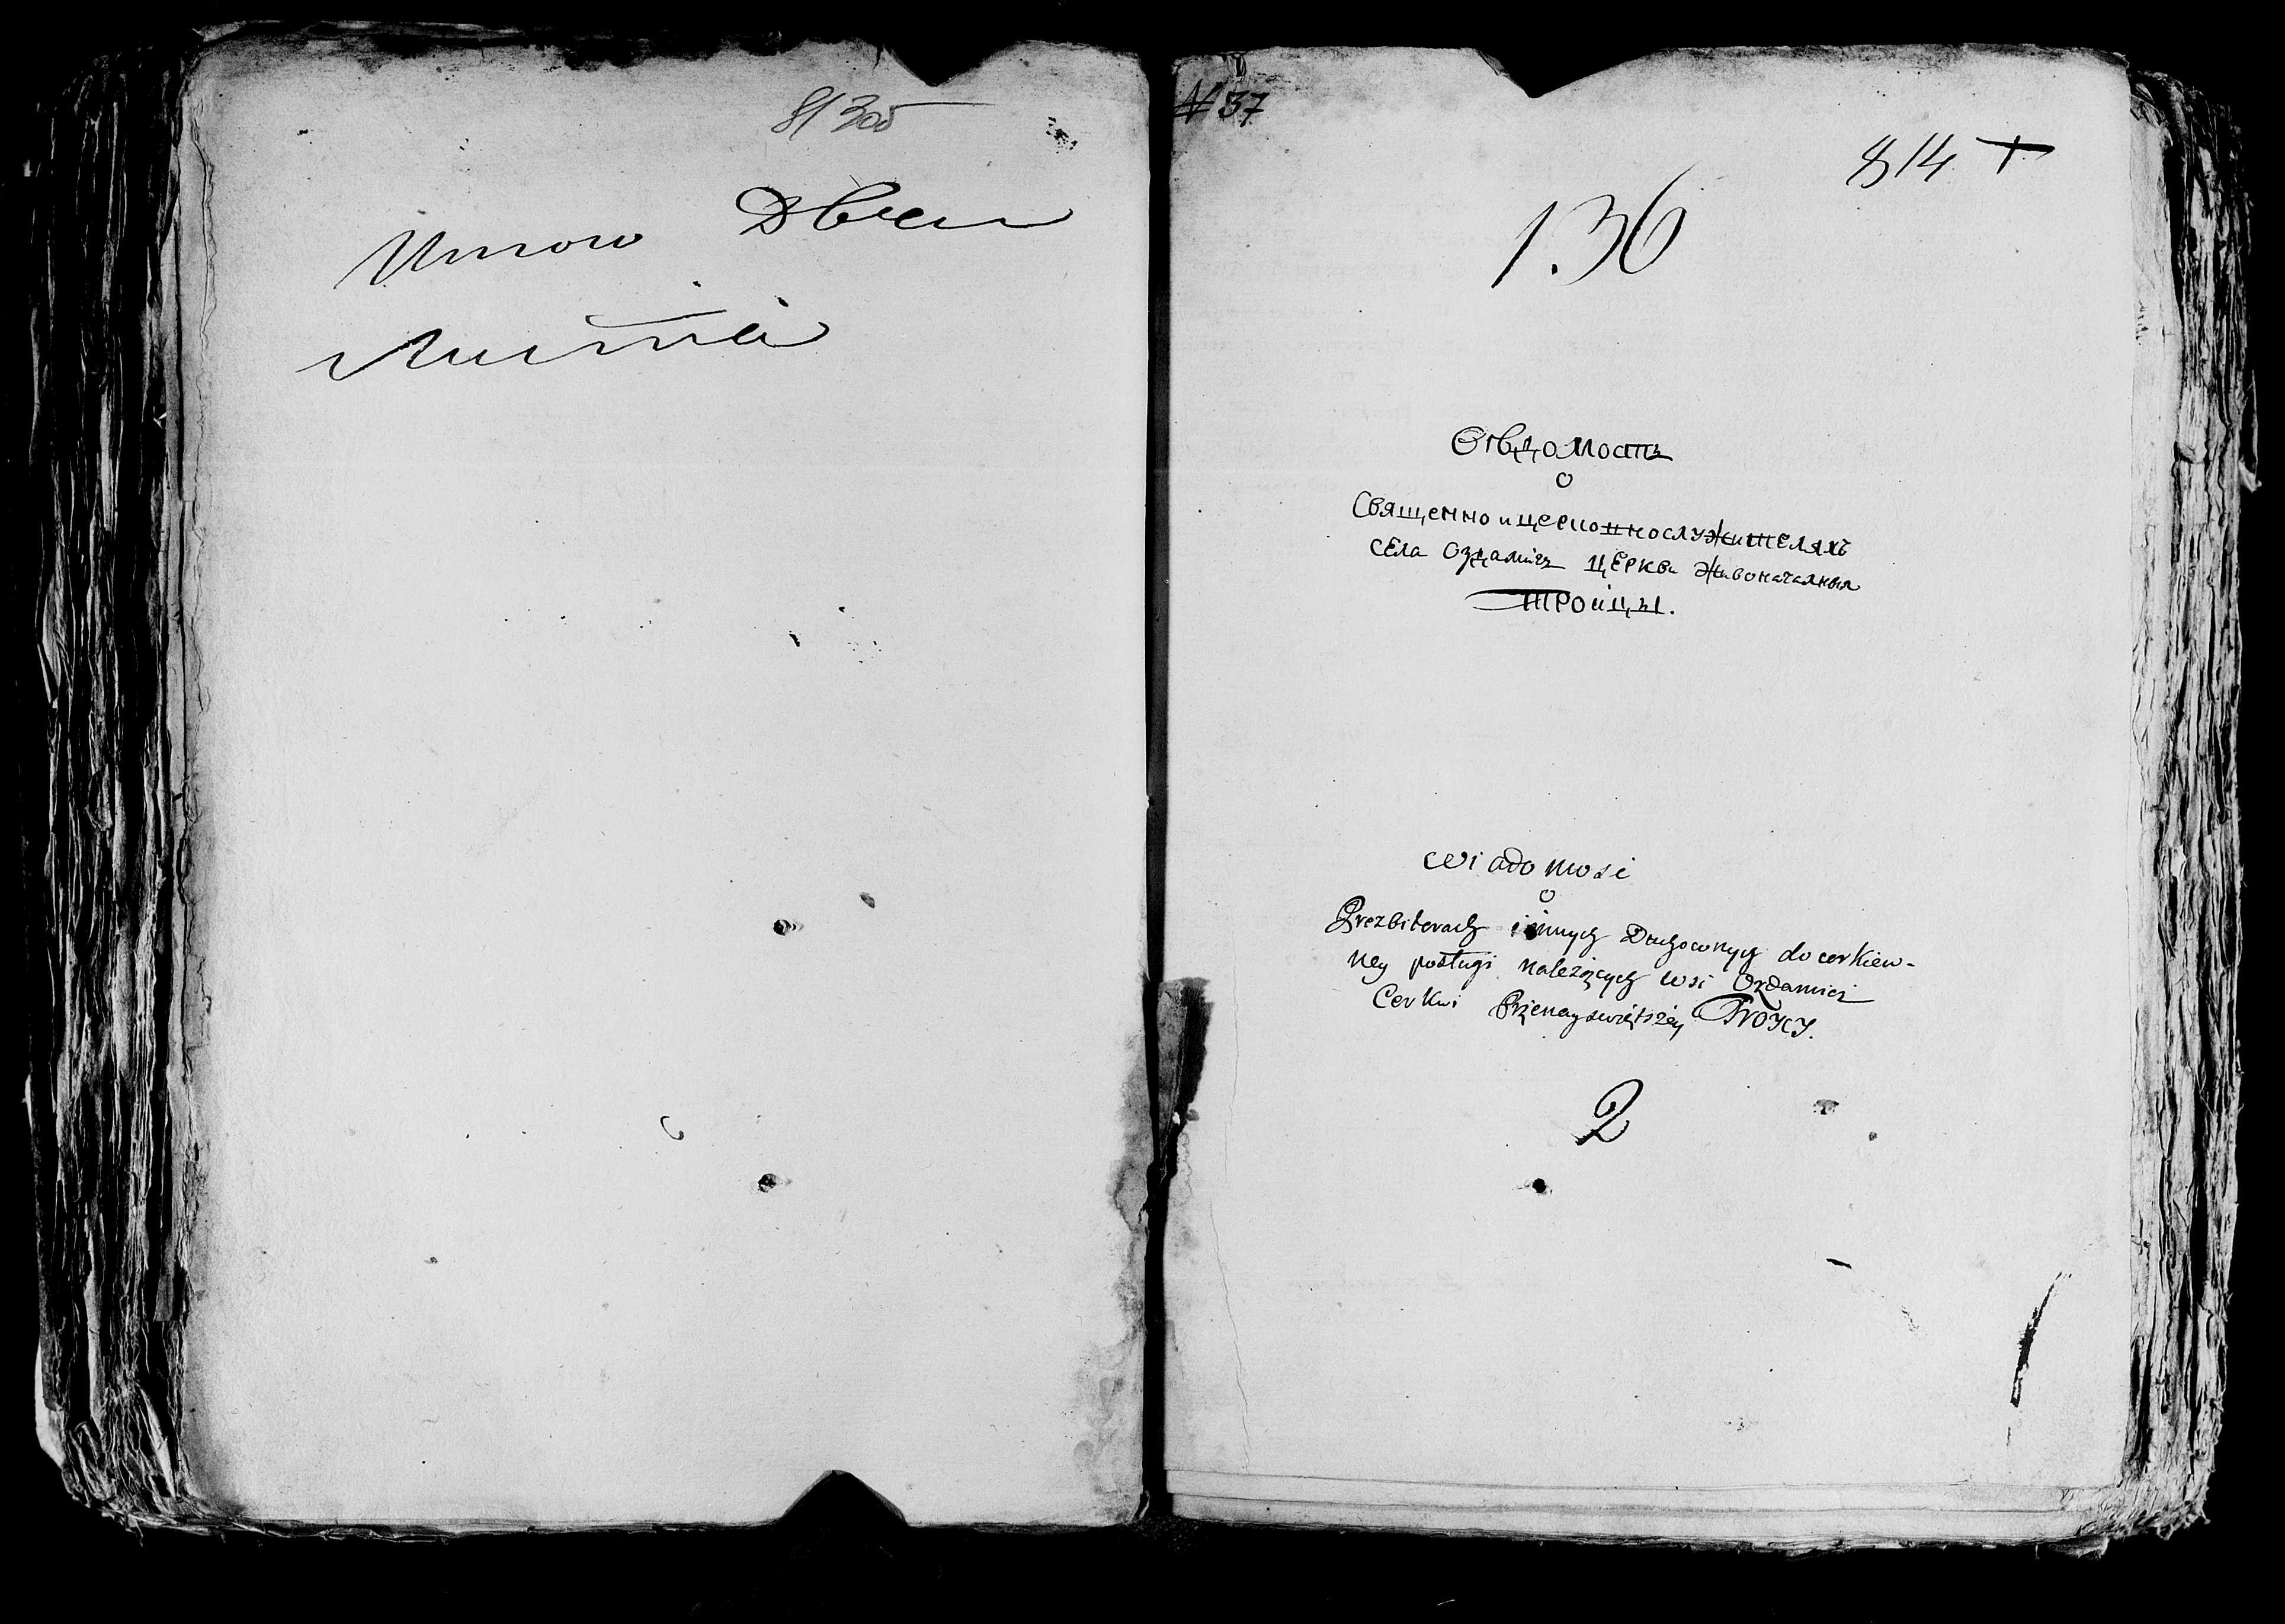 Итого Двен
Листа
№ 37
814 +
136
Овѣдомость
о
Священно и церковнослужителяхъ
села Оздамичъ церкви Живоначалныя
Тройцы.
Wiadomość
o
Prezbiterach i innych Duchownych do cerkiew-
ney posługi należących wsi Ozdamicz
Cerkwi Przenayswiętszey Troycy.
2